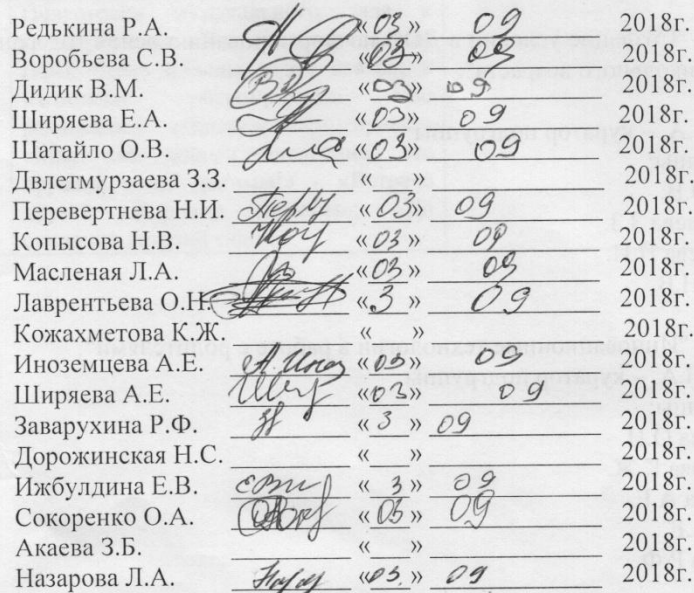 Редькина Р.А. «03» 09 2018г.
Воробьева С.В. «03» 09 2018г.
Дидик В.М. «03» 09 2018г.
Ширяева Е.А. «03» 09 2018г.
Шатайло О.В. «03» 09 2018г.
Двлетмурзаева З.З. « » 2018г.
Перевертнева Н.И. «03» 09 2018г.
Копысова Н.В. «03» 09 2018г.
Масленая Л.А. «03» 09 2018г.
Лаврентьева О.Н. «3» 09 2018г.
Кожахметова К.Ж. « » 2018г.
Иноземцева А.Е. «03» 09 2018г.
Ширяева А.Е. «03» 09 2018г.
Заварухина Р.Ф. «3» 09 2018г.
Дорожинская Н.С. « » 2018г.
Ижбулдина Е.В. «3» 09 2018г.
Сокоренко О.А. «03» 09 2018г.
Акаева З.Б. « » 2018г.
Назарова Л.А. «03.» 09 2018г.